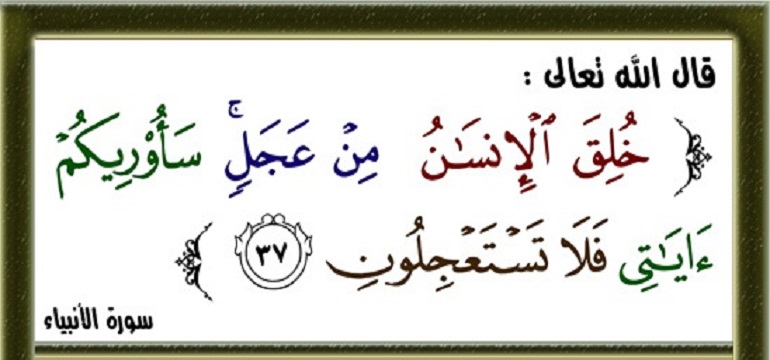 قال الله تعالى :
﴿ خُلِقَ ٱلْإِنسَـٰنُ مِنْ عَجَلٍۢ ۚ سَأُو۟رِيكُمْ
ءَايَـٰتِى فَلَا تَسْتَعْجِلُونِ ٣٧ ﴾
سورة الأنبياء